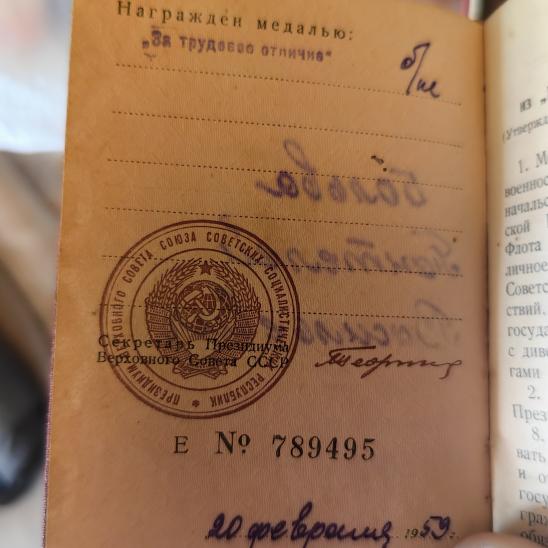 Награждён медалью:
„За трудовое отличие“
б/№
ПРЕЗИДИУМ ВЕРХОВНОГО СОВЕТА СОЮЗА СОВЕТСКИХ СОЦИАЛИСТИЧЕСКИХ РЕСПУБЛИК
Секретарь Президиума
Верховного Совета СССР
Е № 789495
20 февраля 1959 г.
из „
(Утвержд
1. М
военнос
начальс
ской
Флота
личное
Советс
ствий.
госуда
с диве
гами
2.
През
8.
вать
и от
госу
граж
обяз